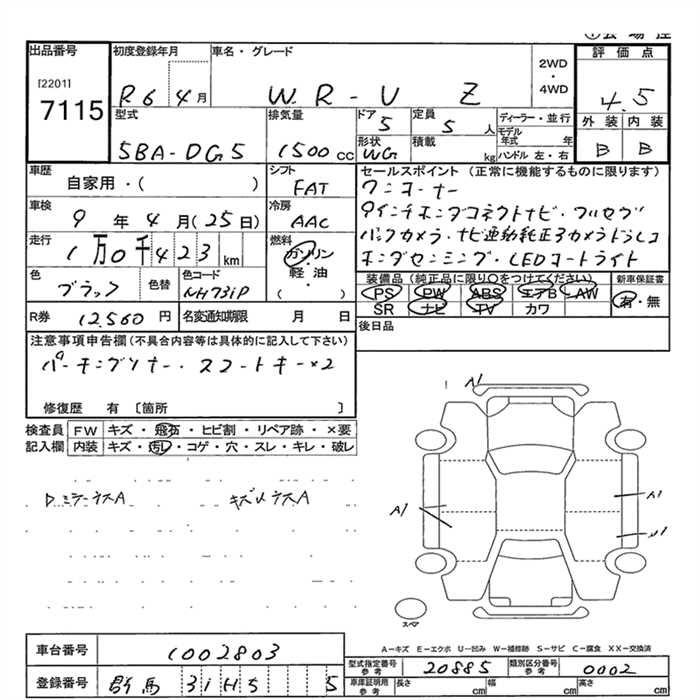 出品番号 初度登録年月 車名・グレード 2WD・4WD 評価点
[2201]
7115
R6 4月 WR-V Z 4.5
型式 排気量 ドア 5 定員 5人 ディーラー・並行 外装 内装
5BA-DG5 1500cc 形状 WG 積載 kg モデル年式 年 ハンドル 左・右 B B
車歴 自家用・( ) シフト FAT セールスポイント(正常に機能するものに限ります)
ワンオーナー
車検 9年4月(25日) 冷房 AAC
9インチホンダコネクトナビ・フルセグ
走行 1万0千423km 燃料 ガソリン・軽油・( )
バックカメラ・ナビ連動純正ドラレコ
ホンダセンシング・LEDコートライト
色 ブラック 色替 色コード NH731P 装備品(純正品に限り○をつけてください) 新車保証書
PS PW ABS エアB AW 有・無
SR ナビ TV カワ
R券 12,560円 名変通知期限 月 日 後日品
注意事項申告欄(不具合内容等は具体的に記入して下さい)
パーキングソナー・スマートキー×2
修復歴 有 〔箇所 〕
検査員記入欄 FW キズ・飛石・ヒビ割・リペア跡・×要
内装 キズ・汚レ・コゲ・穴・スレ・キレ・破レ
A1
A1 A1
スペア
A-キズ E-エクボ U-凹み W-補修跡 S-サビ C-腐食 XX-交換済
車台番号 1002803 型式指定番号 参考 20885 類別区分番号 参考 0002
登録番号 群馬 31H5 5 車庫証明用 参考 長さ cm 幅 cm 高さ cm